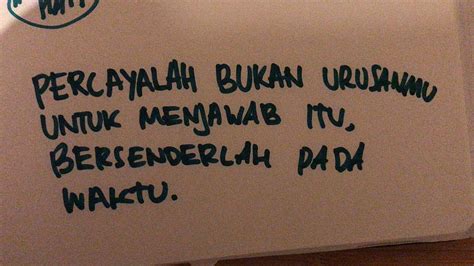 PERCAYALAH BUKAN URUSANMU
UNTUK MENJAWAB ITU,
BERSENDERLAH PADA
WAKTU.